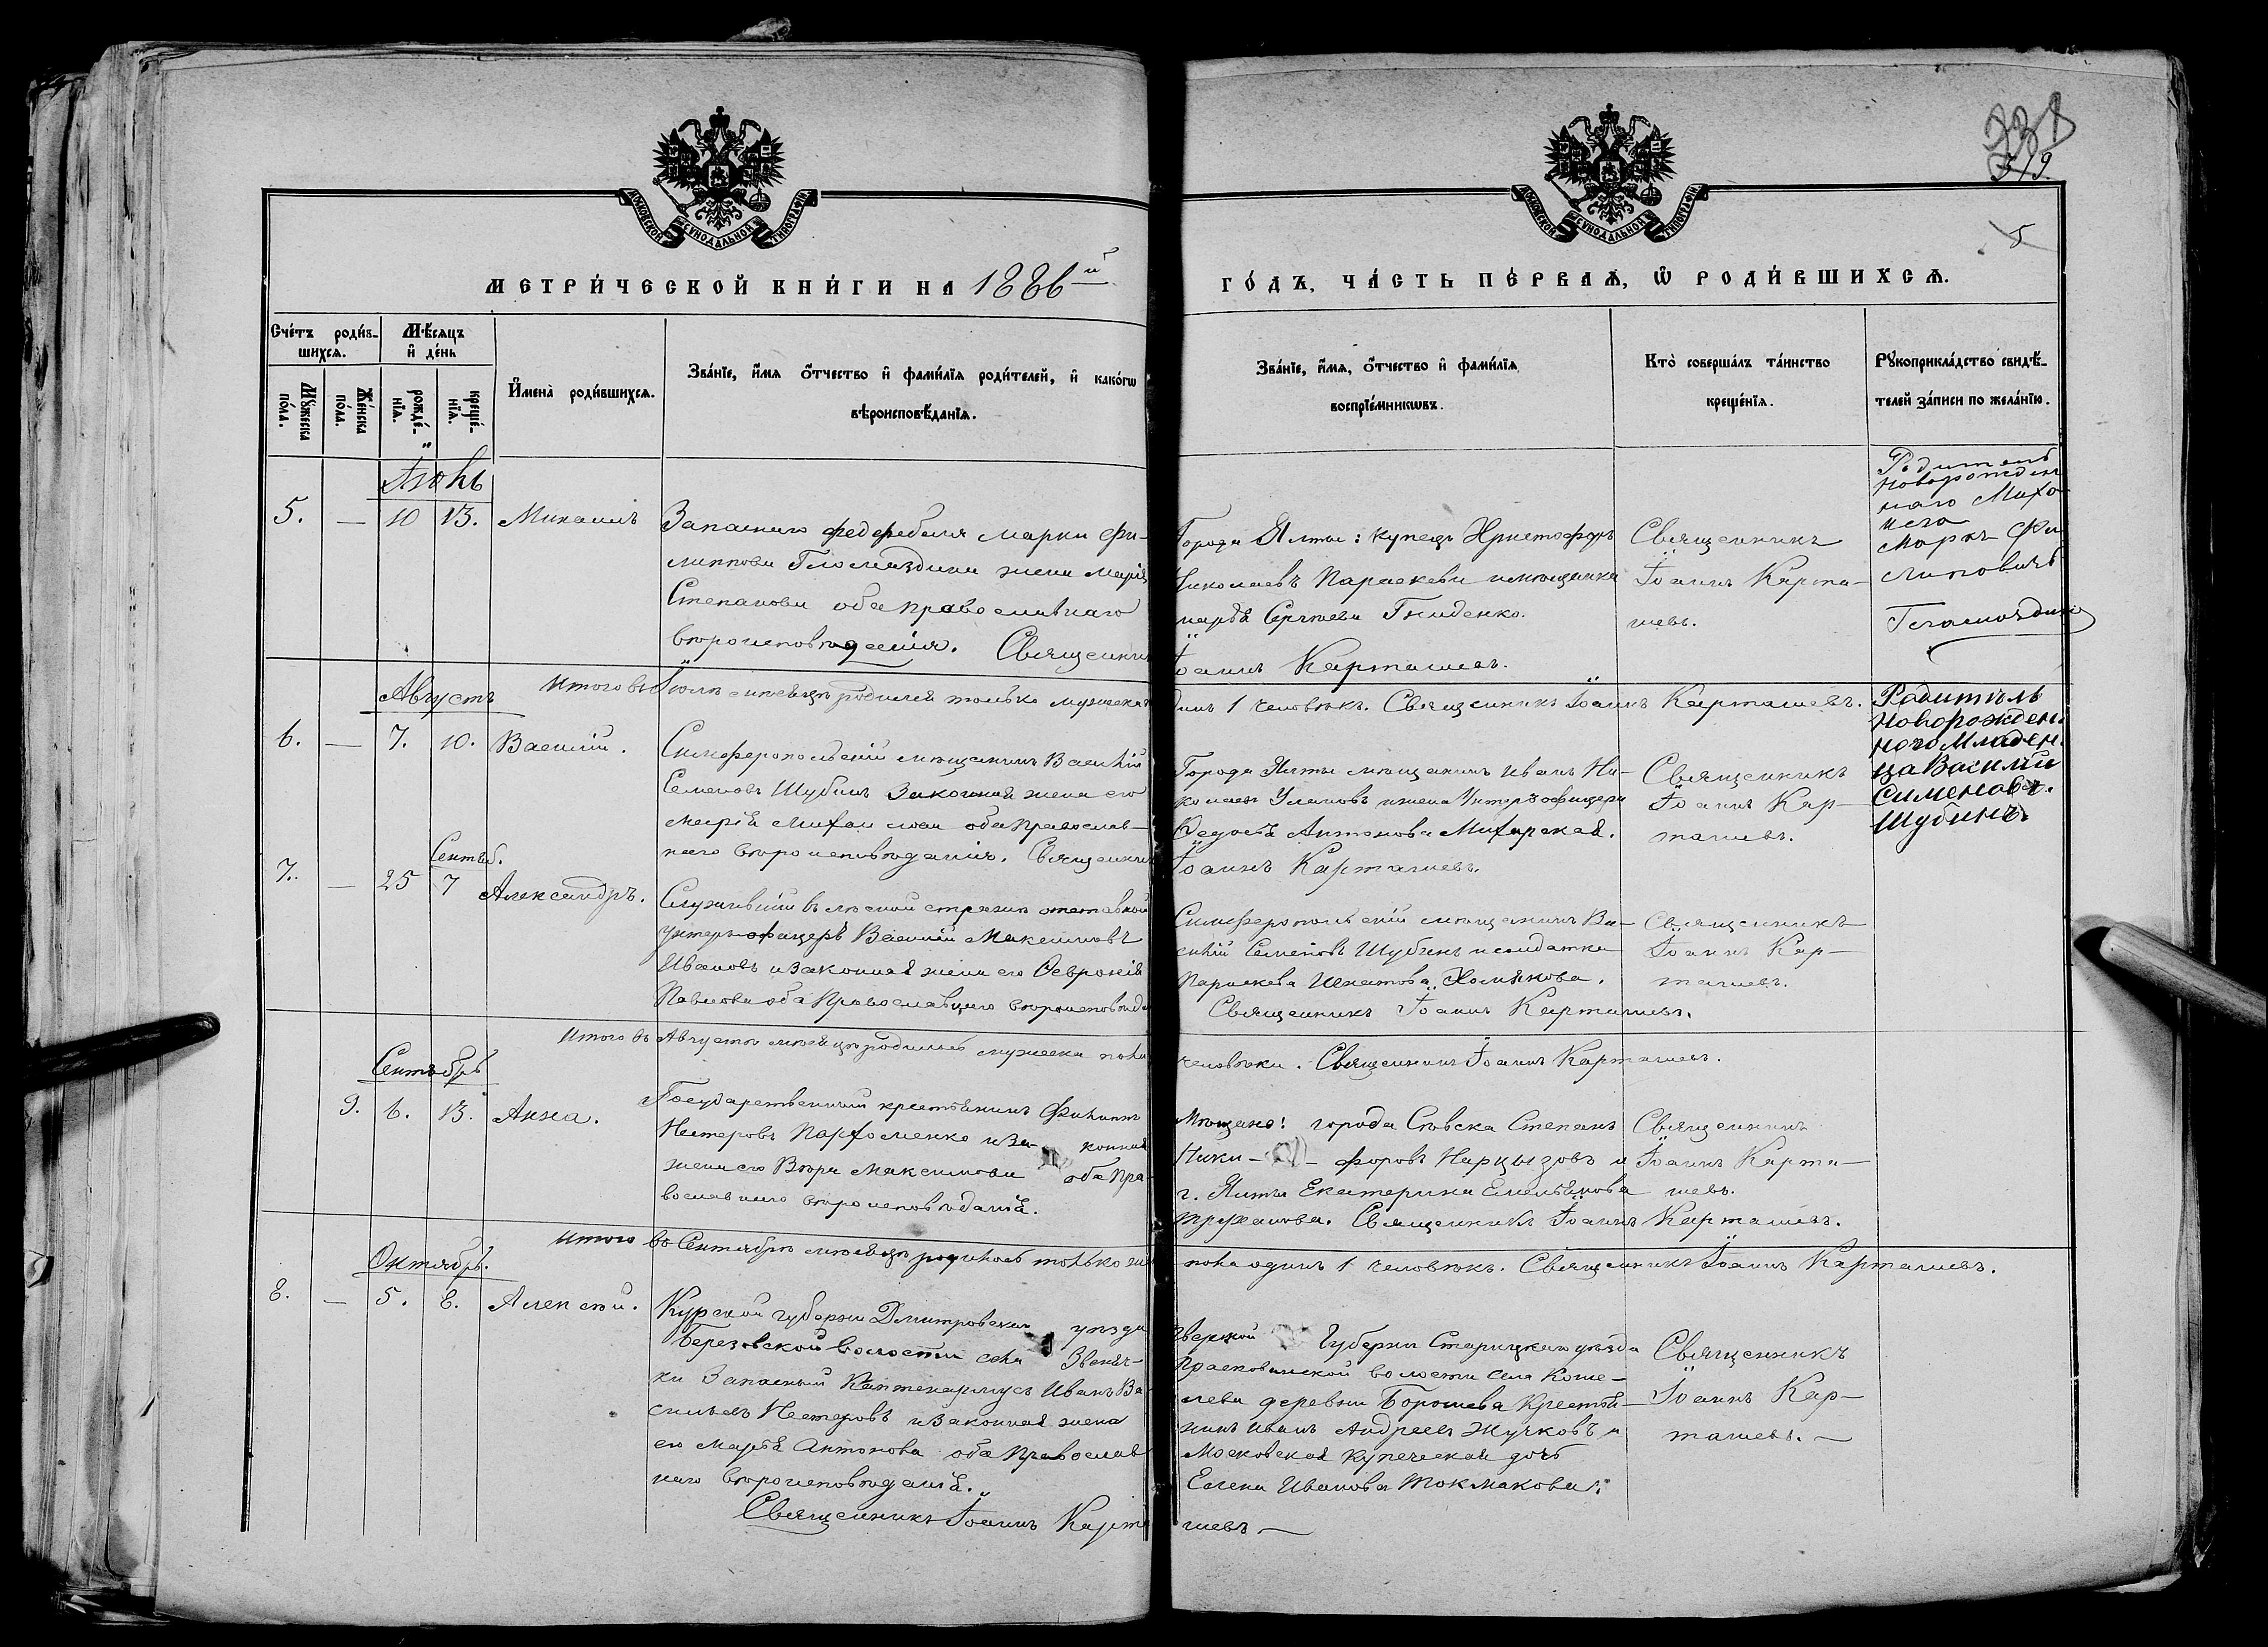 338
319
5
МОСКОВСКОЙ СѴНОДАЛЬНОЙ ТИПОГРАФІИ
МОСКОВСКОЙ СѴНОДАЛЬНОЙ ТИПОГРАФІИ
МЕТРИ́ЧЕСКОЙ КНИ́ГИ НА 1886й
ГО́ДЪ, ЧА́СТЬ ПЕ́РВАѦ, Ѽ РОДИ́ВШИХСѦ.
Сче́тъ роди́в-
шихсѧ.
Мѣ́сѧцъ
и҆ де́нь
Мꙋ́жеска
по́ла.
Же́нска
по́ла.
рожде́-
нїѧ.
креще́-
нїѧ.
И҆мена̀ роди́вшихсѧ.
Зва́нїе, и҆́мѧ ѻ҆́тчество и҆ фами́лїѧ роди́телей, и҆ како́гѡ
вѣроисповѣ́данїѧ.
Зва́нїе, и҆́мѧ, ѻ҆́тчество и҆ фами́лїѧ
воспрїе́мникѡвъ.
Кто̀ соверша́лъ та́инство
креще́нїѧ.
Рꙋкоприкла́дство свидѣ́-
телей за́писи по жела́нїю.
5. — 10 13. Михаилъ
Запаснаго фельдфебеля Марка Фи-
липпова жена Марія
Степанова оба православнаго
вѣроисповѣданія. Священникъ
Города Ялты: купецъ Христофоръ
Николаевъ Параскеви и мѣщанка
Марѳа Сергѣева Гниденко.
Іоаннъ Карташевъ.
Священникъ
Іоаннъ Карта-
шевъ.
Родитель
новорожден
наго Миха
ила
Маркъ Фи
липовичъ
Итого въ мѣсяцѣ родился только мужеска
1 человѣкъ. Священникъ Іоаннъ Карташевъ.
Августъ
6. — 7. 10. Василій.
Симферопольскій мѣщанинъ Василій
Семеновъ Шубинъ законная жена его
Марія оба православ-
наго вѣроисповѣданія. Священникъ
Города Ялты мѣщанинъ Иванъ Ни-
колаевъ Улановъ и жена Унтеръ офицера
Ѳедосія Антонова
Іоаннъ Карташевъ.
Священникъ
Іоаннъ Кар-
ташевъ.
Родитѣль
Новорожден.
ного Младен.
ца Василій
Сименовъ.
Шубинъ.
Сентяб.
7. — 25 7 Александръ.
Служившій въ лѣсной стражѣ отставной
унтеръ-офицеръ Василій Максимовъ
Ивановъ и законная жена его Февронія
Павлова оба Православнаго вѣроисповѣда
Симферопольскій мѣщанинъ Ва-
силій Семеновъ Шубинъ и солдатка
Параскева Игнатова Хомякова.
Священникъ Іоаннъ Карташевъ.
Священникъ
Іоаннъ Кар-
ташевъ.
Итого въ Августѣ мѣсяцѣ родилось мужеска пола
человѣка. Священникъ Іоаннъ Карташевъ.
Сентябрь
9. 6. 13. Анна.
Государственный крестьянинъ Филиппъ
Нестеровъ Парфоменко и за- конная
жена его Вѣра Максимова оба Пра-
вославнаго вѣроисповѣданія.
Мѣщане: города Сѣвска Степанъ
Ники- - форовъ Нарцызовъ и
г. Ялты Екатерина Емельянова
Труханова. Священникъ Іоаннъ Карташевъ.
Священникъ
Іоаннъ Карта-
шевъ.
Итого въ Сентябрѣ мѣсяцѣ родилось только
пола одинъ 1 человѣкъ. Священникъ Іоаннъ Карташевъ.
Октябрь.
8. — 5. 8. Алексѣй.
Курской губерніи Дмитровскаго уѣзда
Березовской волости села
Запасный Каптенармусъ Иванъ Ва-
сильевъ Нестеровъ и законная жена
его Марѳа Антонова оба Православ
наго вѣроисповѣданія.
Священникъ Іоаннъ Карта
шевъ —
Тверской Губерніи Старицкаго уѣзда
волости села Коше-
лева деревни Борышева Крестья-
нинъ Иванъ Андреевъ Жучковъ и
Московская купеческая дочь
Елена Иванова Токмакова.
Священникъ
Іоаннъ Кар-
ташевъ. —